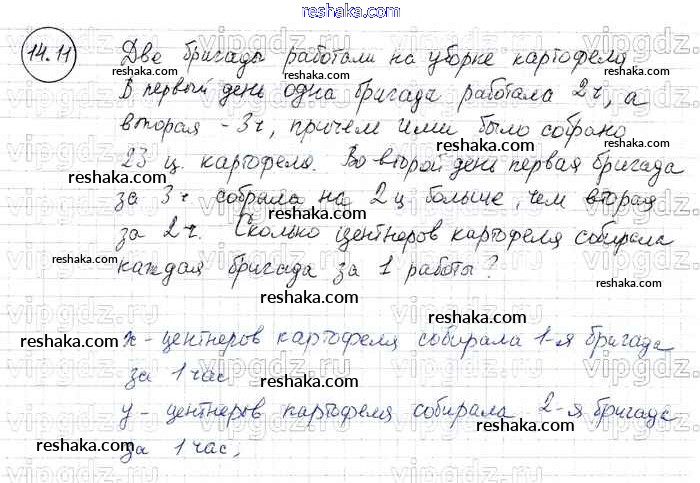 reshaka.com
14.11
Две бригады работали на уборке картофеля
reshaka.com reshaka.com reshaka.com
В первый день одна бригада работала 2ч, а
reshaka.com reshaka.com
вторая - 3ч, причем ими было собрано
23 ц. картофеля. Во второй день первая бригада
reshaka.com reshaka.com reshaka.com
за 3ч собрала на 2ц больше, чем вторая
reshaka.com reshaka.com
за 2ч. Сколько центнеров картофеля собирала
каждая бригада за 1 работы?
reshaka.com reshaka.com reshaka.com
reshaka.com
х - центнеров картофеля собирала 1-я бригада
reshaka.com reshaka.com
за 1 час
reshaka.com
у - центнеров картофеля собирала 2-я бригада
reshaka.com reshaka.com reshaka.com
за 1 час,